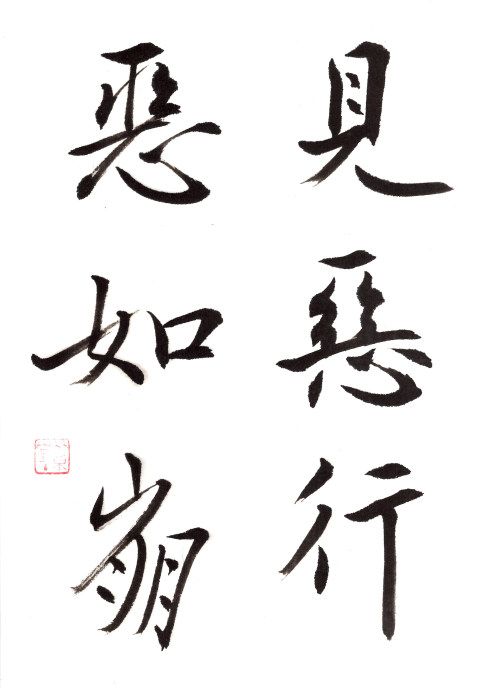 見惡行
惡如崩